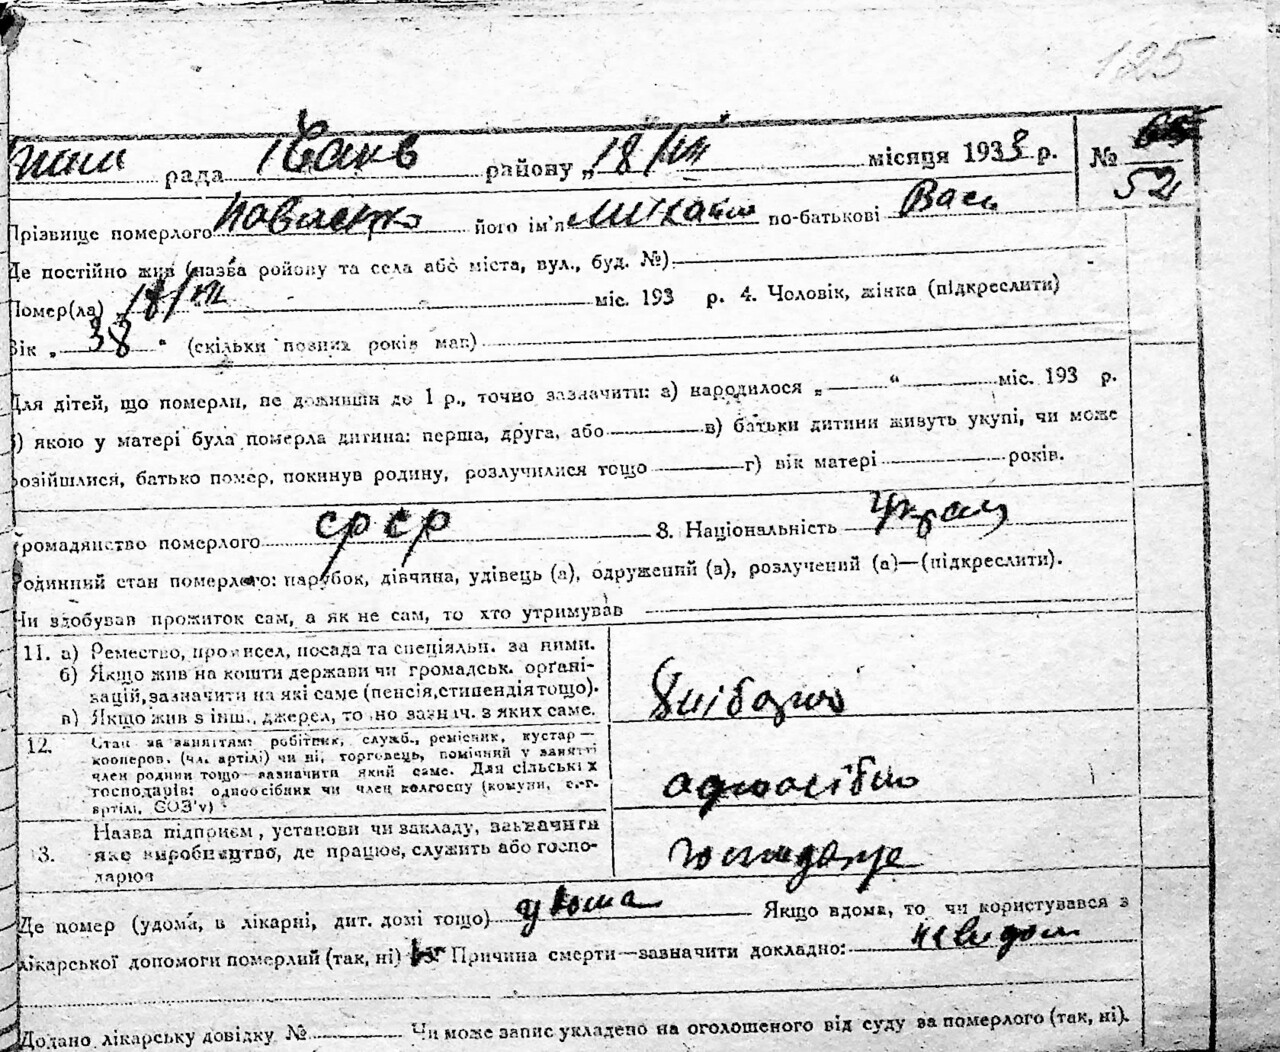 125
рада районом „18/VII місяця 1933 р. № 65
52
Прізвище померлого його ім'я Михайло по-батькові Васи
Де постійно жив (назва ройону та села або міста, вул., буд. №)
Помер(ла) „18/VII міс. 193 р. 4. Чоловік, жінка (підкреслити)
Вік „ 38 “ (скільки повних років мав)
Для дітей, що померли, не доживши до 1 р., точно зазначити: а) народилося „ “ міс. 193 р.
б) якою у матері була померла дитина: перша, друга, або в) батьки дитини живуть укупі, чи може
розійшлися, батько помер, покинув родину, розлучилися тощо г) вік матері років.
Громадянство померлого СРСР 8. Національність Украї
Родинний стан померлого: парубок, дівчина, удівець (а), одружений (а), розлучений (а)—(підкреслити).
Чи здобував прожиток сам, а як не сам, то хто утримував
11. а) Ремество, промисел, посада та спеціяльн. за ними.
б) Якщо жив на кошти держави чи громадськ. орґані-
зацій, зазначити на які саме (пенсія, стипендія тощо).
в) Якщо жив з інш., джерел, то но зазнач. з яких саме.
Хлібороб
12. Стан за заняттям: робітник, служб., ремісник, кустар—
кооперов. (чл. артілі) чи ні, торговець, помічний у занятті
член родини тощо—зазначити який саме. Для сільських
господарів: одноосібник чи член колгоспу (комуни, с.-г.
артілі, СОЗ'у)
одноосібно
13. Назва підприєм, установи чи закладу, зазначити
яке виробництво, де працює, служить або госпо-
дарює
господарює
Де помер (удома, в лікарні, дит. домі тощо) удома Якщо вдома, то чи користувався з
лікарської допомоги померлий (так, ні) Причина смерти—зазначити докладно: невидом
Додано лікарську довідку № Чи може запис укладено на оголошеного від суду за померлого (так, ні).